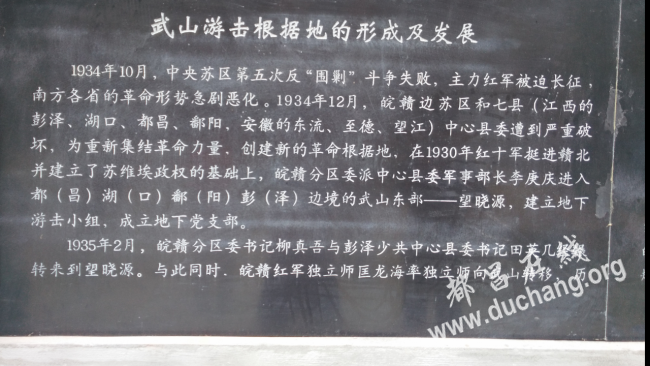 武山游击根据地的形成及发展
1934年10月，中央苏区第五次反“围剿”斗争失败，主力红军被迫长征，
南方各省的革命形势急剧恶化。1934年12月，皖赣边苏区和七县（江西的
彭泽、湖口、都昌、鄱阳、安徽的东流、至德、望江）中心县委遭到严重破
坏，为重新集结革命力量．创建新的革命根据地，在1930年红十军挺进赣北
并建立了苏维埃政权的基础上，皖赣分区委派中心县委军事部长李庚庆进入
都（昌）湖（口）鄱（阳）彭（泽）边境的武山东部——望晓源，建立地下
游击小组、成立地下党支部。
1935年2月，皖赣分区委书记柳真吾与彭泽少共中心县委书记田英几经
转来到望晓源。与此同时．皖赣红军独立师匡龙海率独立师向武山转移，历
都昌在线
www.duchang.org